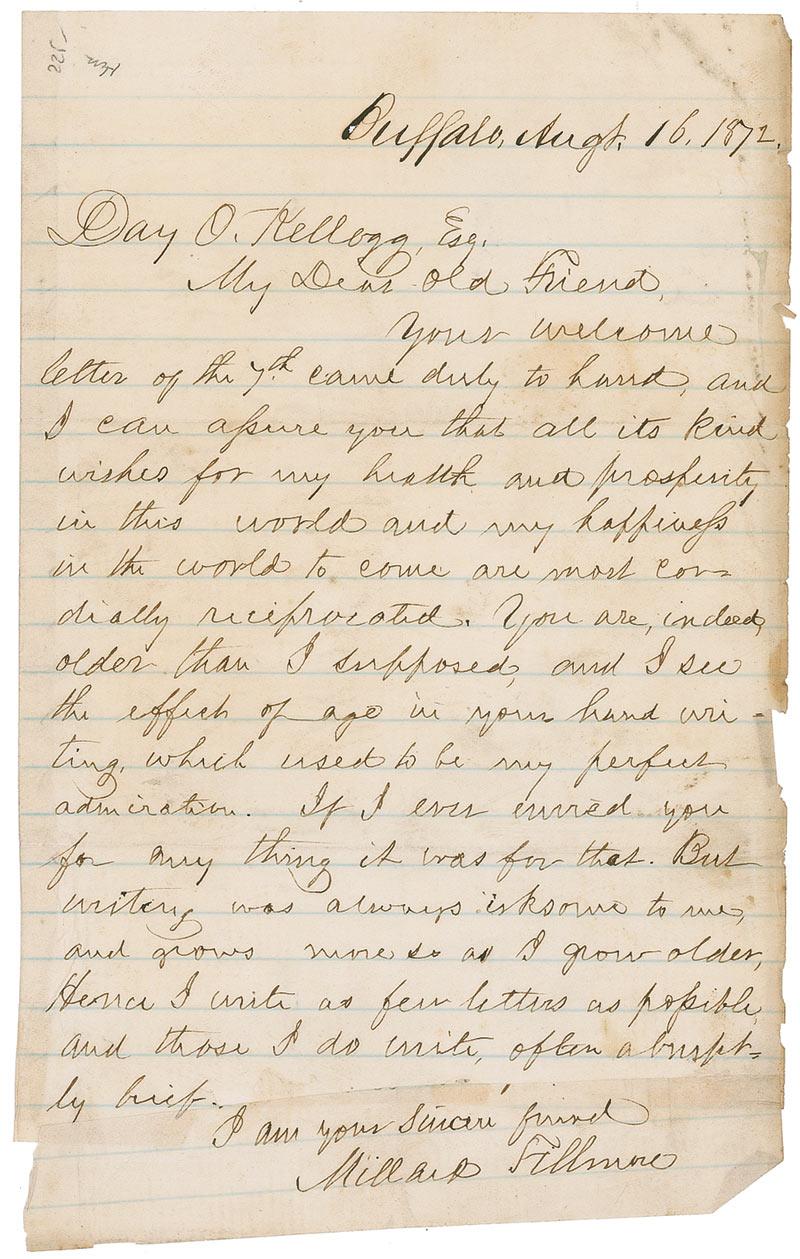 225-
Buffalo, Augt. 16. 1872.
Day O. Kellogg, Esq.
My Dear Old Friend,
Your welcome
letter of the 7th. came duly to hand, and
I can assure you that all its kind
wishes for my health and prosperity
in this world and my happiness
in the world to come are most cor=
dially reciprocated. You are, indeed,
older than I supposed, and I see
the effect of age in your hand wri-
ting, which used to be my perfect
admiration. If I ever envied you
for any thing it was for that. But
writing was always irksome to me,
and grows more so as I grow older,
Hence I write as few letters as possible,
and those I do write, often abrupt=
ly brief.
I am your sincere friend
Millard Fillmore